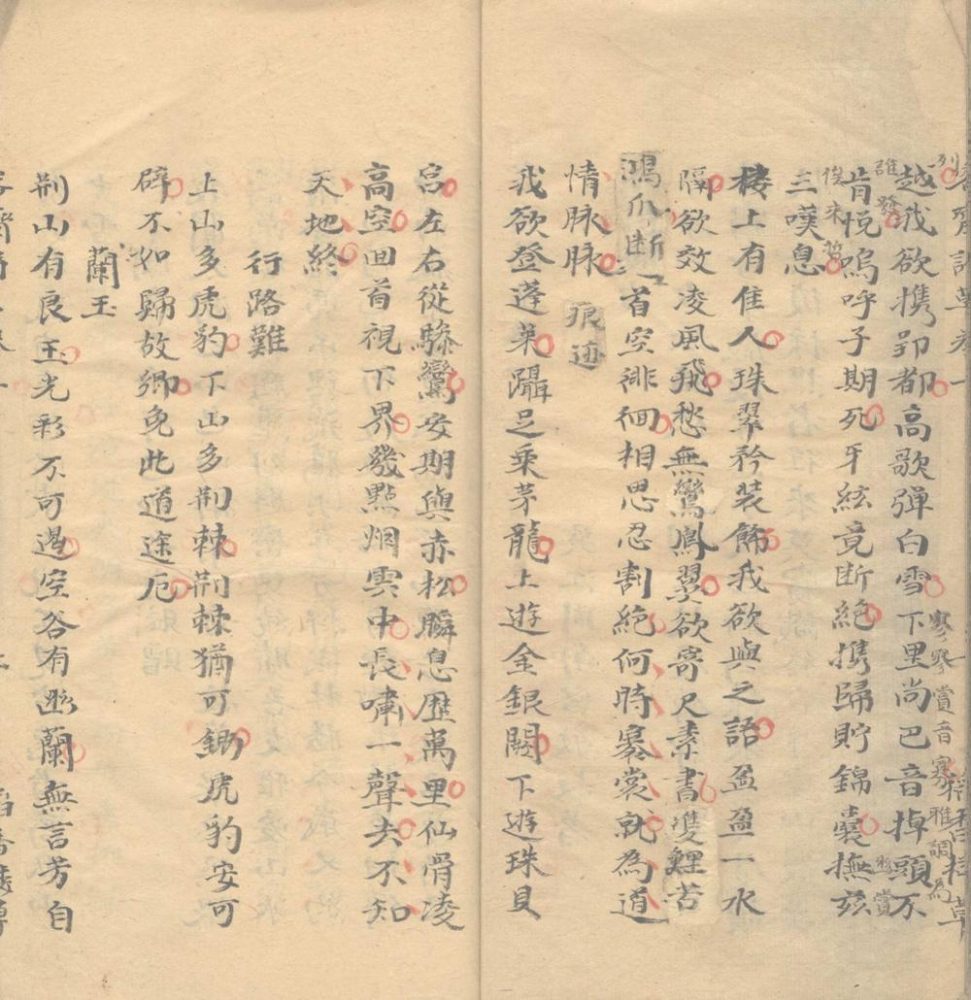 越我欲攜卭都高歌彈白雪下里尚巴音掉頭不
肯悅嗚呼子期死牙絃竟断絕携歸貯錦囊撫茲
三嘆息
樓上有佳人珠翠矜裝飾我欲與之語盈盈一水
隔欲效凌風飛愁無鸞鳳翼欲寄尺素書雙鯉苦
鴻爪断回首空徘徊相思忍割絕何時褰裳就為道
情脉脉
痕迹
我欲登蓬萊躡足乘茅龍上遊金銀闕下遊珠貝
宮左右從驂鸞安期與赤松瞬息歷萬里仙骨凌
高空回首視下界發點烟雲中長嘯一聲去不知
天地終
行路難
上山多虎豹下山多荆棘荆棘猶可鋤虎豹安可
辟不如歸故鄉免此道途厄
蘭玉
荆山有良玉光彩不可遏空谷有幽蘭無言芳自